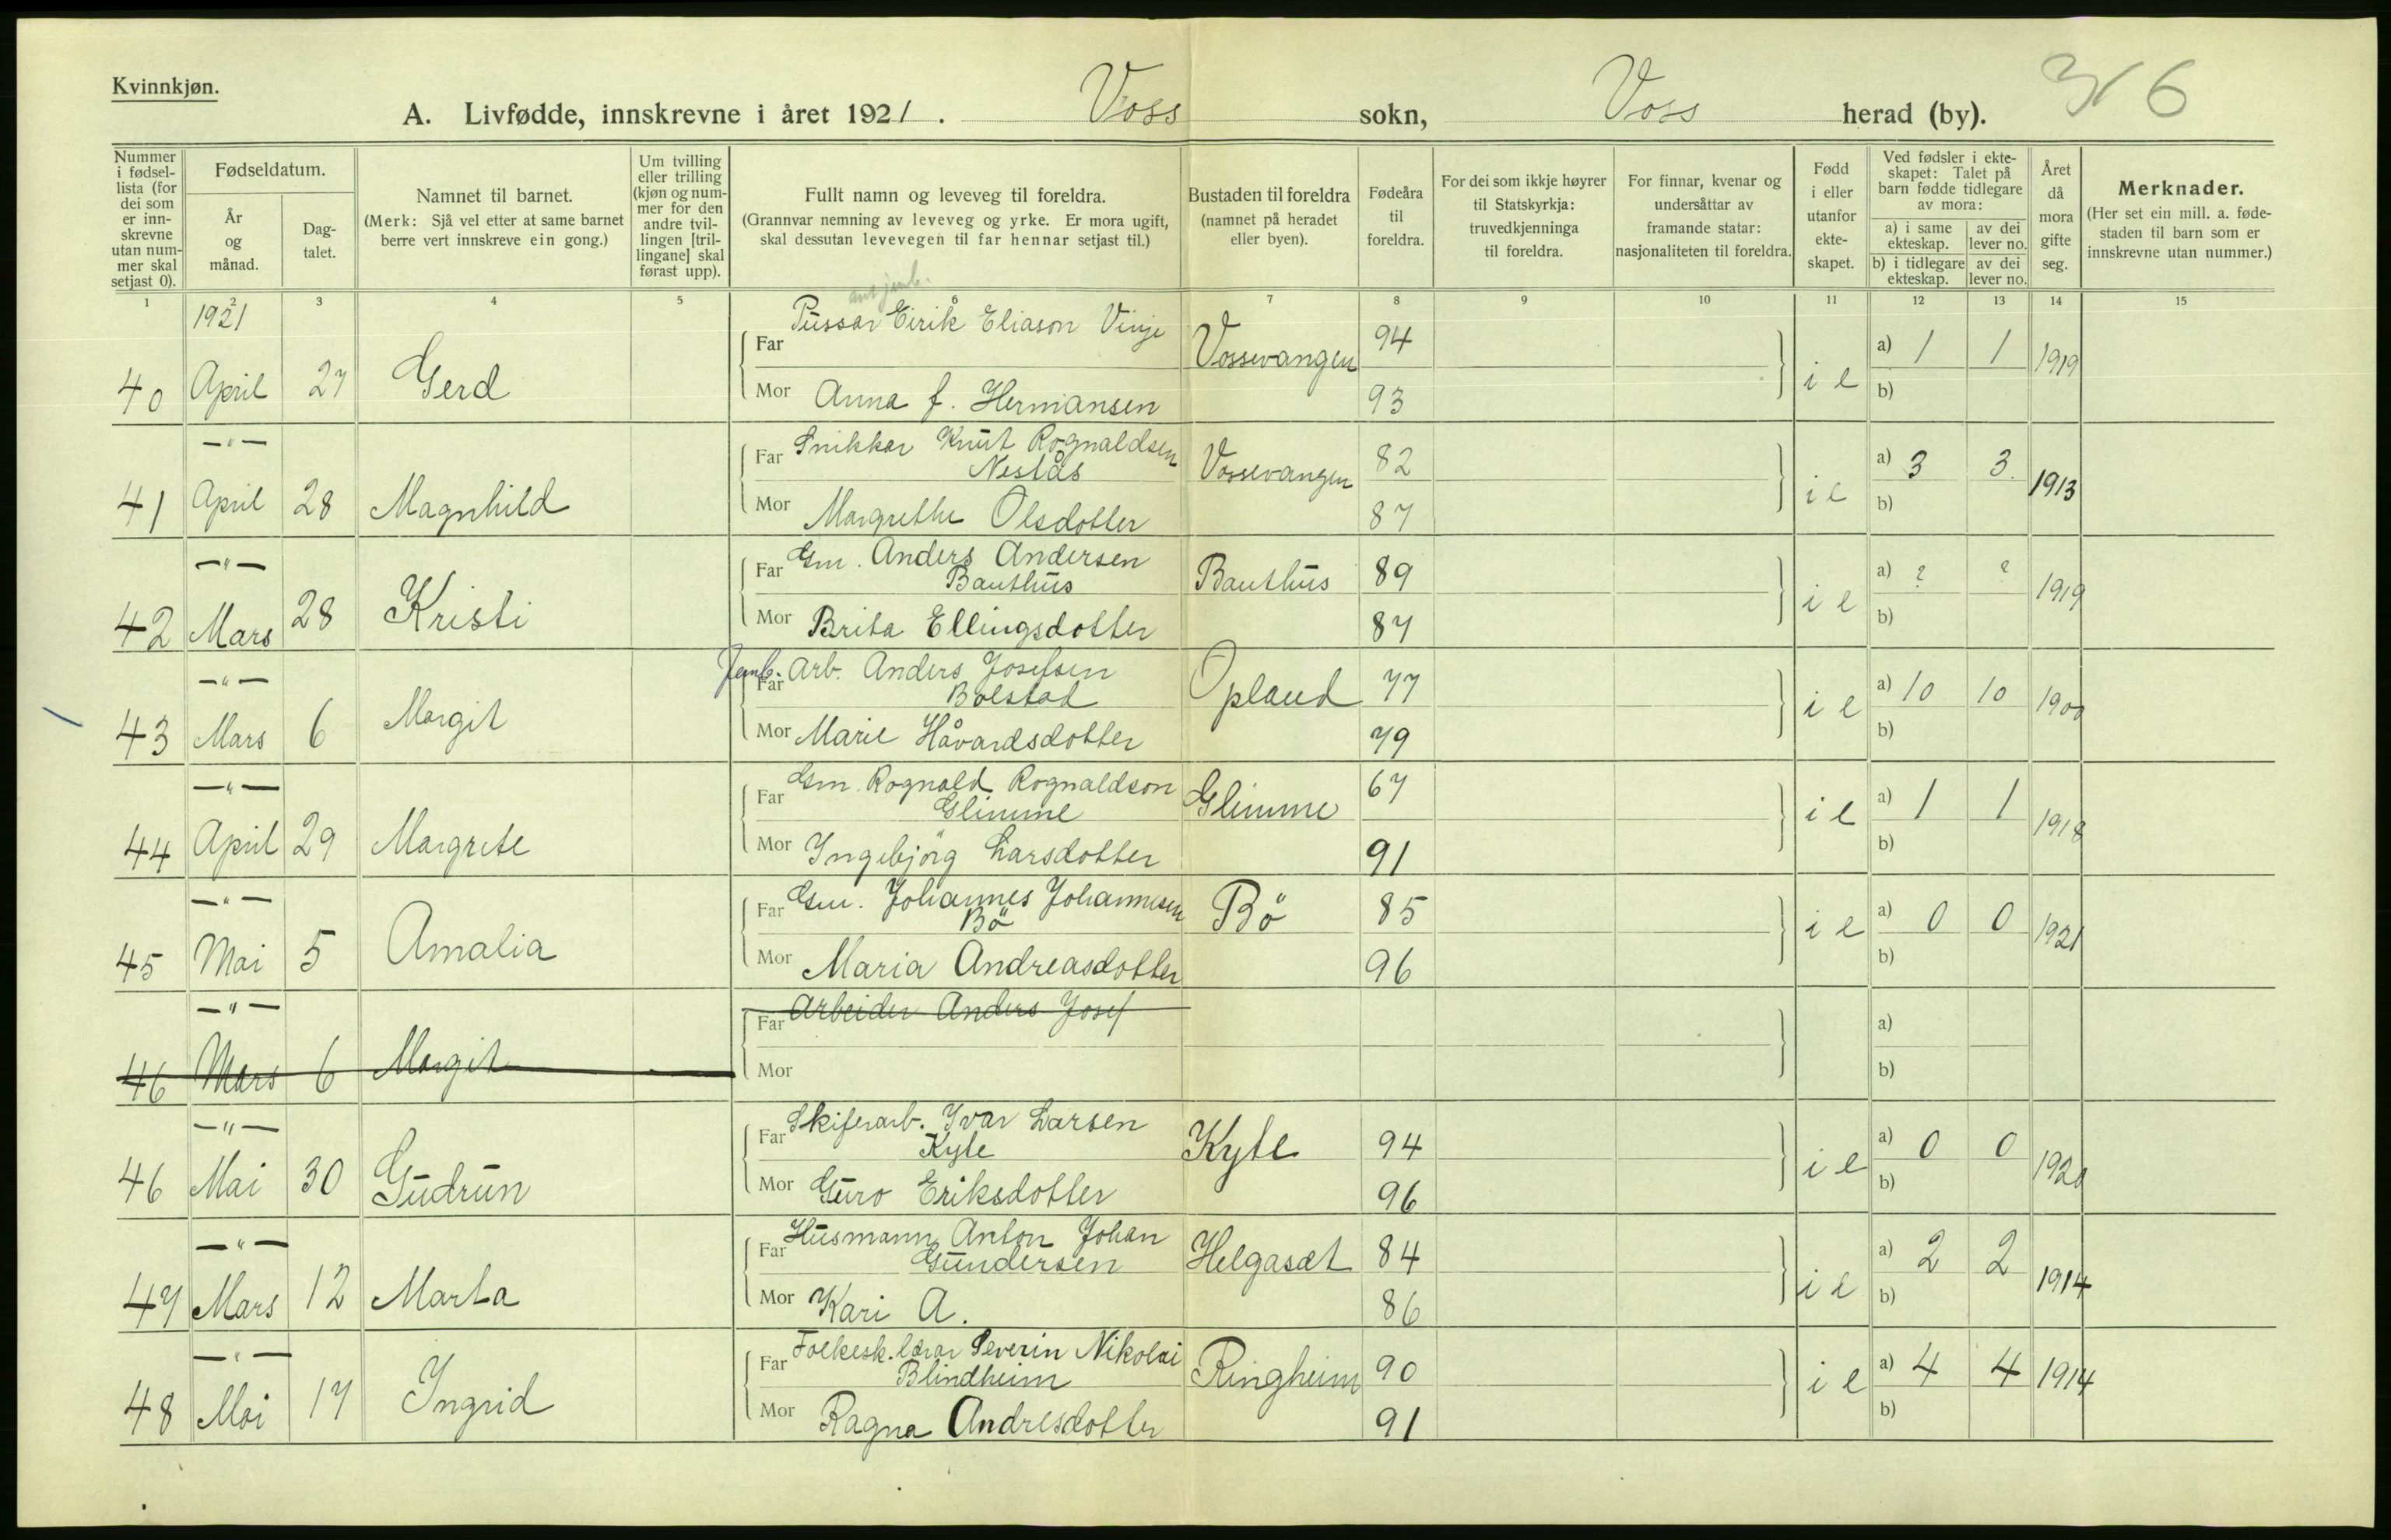 Kvinnkjøn.
A. Livfødde, innskrevne i året 1921. Voss sokn, Voss herad (by). 316
Nummer i fødsel-lista (for dei som er inn-skrevne utan num-mer skal setjast 0).
Fødseldatum.
År og månad.
Dag-talet.
Namnet til barnet.
(Merk: Sjå vel etter at same barnet berre vert innskreve ein gong.)
Um tvilling eller trilling (kjøn og num-mer for den andre tvil-lingen [tril-lingane] skal førast upp).
Fullt namn og leveveg til foreldra.
(Grannvar nemning av leveveg og yrke. Er mora ugift, skal dessutan levevegen til far hennar setjast til.)
Bustaden til foreldra
(namnet på heradet eller byen).
Fødeåra til foreldra.
For dei som ikkje høyrer til Statskyrkja: truvedkjenninga til foreldra.
For finnar, kvenar og undersåttar av framande statar: nasjonaliteten til foreldra.
Fødd i eller utanfor ekte-skapet.
Ved fødsler i ekte-skapet: Talet på barn fødde tidlegare av mora:
a) i same ekteskap. av dei lever no.
b) i tidlegare ekteskap. av dei lever no.
Året då mora gifte seg.
Merknader.
(Her set ein mill. a. føde-staden til barn som er innskrevne utan nummer.)
1 2 3 4 5 6 7 8 9 10 11 12 13 14 15
1921
Far Pussar Eirik Eliason Vinje Vossevangen 94 a) 1 1 1919
40 April 27 Gerd Mor Anna f. Hermansen 93 i e b)
—"—
Far Snikkar Knut Rognaldsen Nestås Vossevangen 82 a) 3 3 1913
41 April 28 Magnhild Mor Margrethe Olsdotter 87 i e b)
—"—
Far Gm. Anders Andersen Bauthus Bauthus 89 a) ? ? 1919
42 Mars 28 Kristi Mor Brita Ellingsdotter 87 i e b)
—"—
Far Jernb. Arb. Anders Josefsen Bolstad Opland 77 a) 10 10 1900
43 Mars 6 Margit Mor Marie Håvardsdotter 79 i e b)
—"—
Far Gm. Rognald Rognaldson Glimme Glimme 67 a) 1 1 1918
44 April 29 Margrete Mor Ingebjörg Larsdotter 91 i e b)
—"—
Far Gm. Johannes Johannesen Bö Bö 85 a) 0 0 1921
45 Mai 5 Amalia Mor Maria Andreasdotter 96 i e b)
—"—
Far Arbeider Anders Josef a)
46 Mars 6 Margit Mor b)
—"—
Far Skiferarb. Ivar Larsen Kyte Kyte 94 a) 0 0 1920
46 Mai 30 Gudrun Mor Guro Eriksdotter 96 i e b)
—"—
Far Husmann Anton Johan Gundersen Helgasæt 84 a) 2 2 1914
47 Mars 12 Marta Mor Kari A. 86 i e b)
—"—
Far Folkesk. lærar Severin Nikolai Blindheim Ringheim 90 a) 4 4 1914
48 Mai 17 Ingrid Mor Ragna Andresdotter 91 i e b)